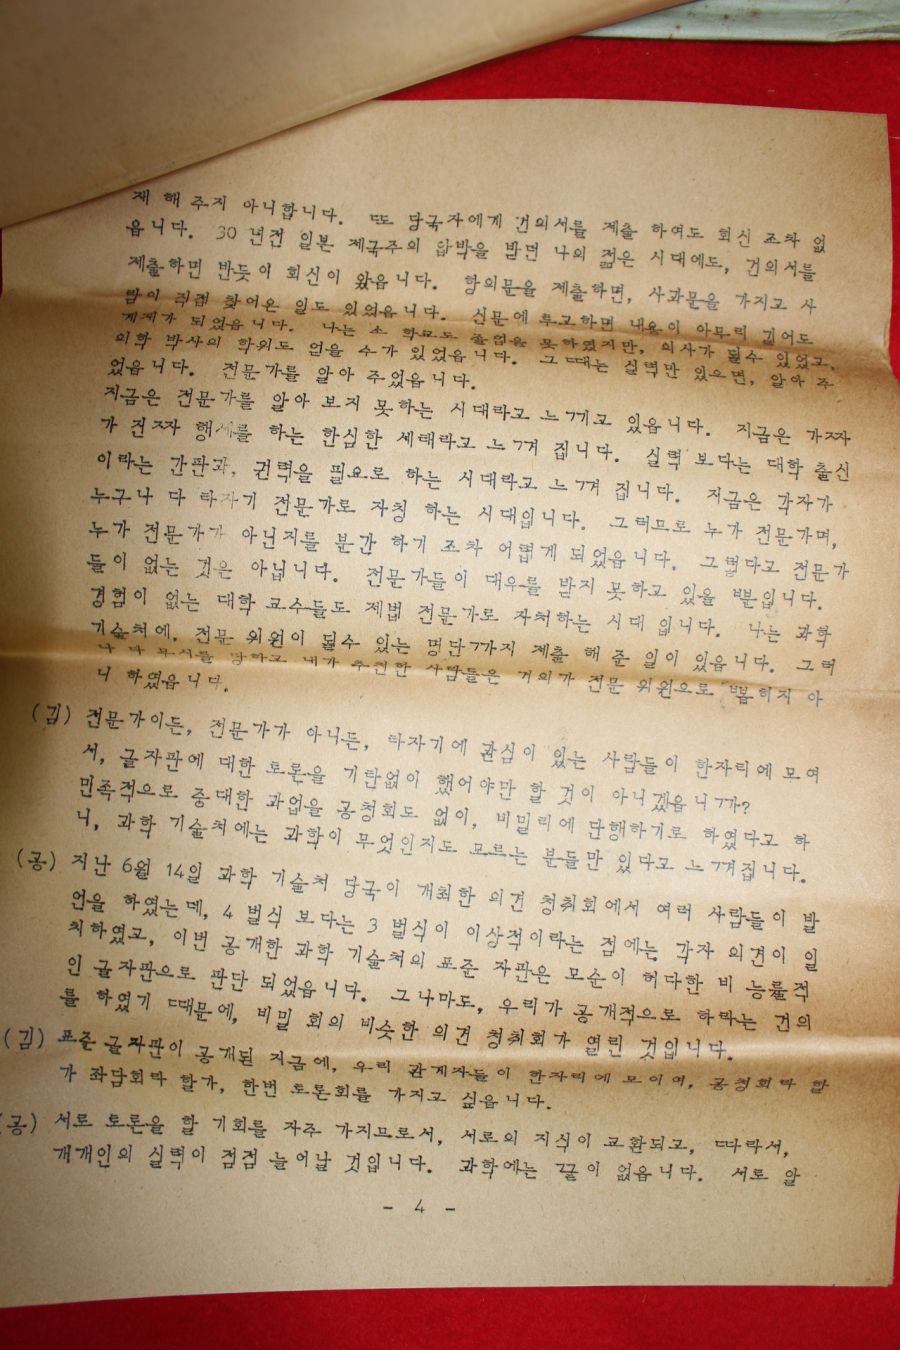 재 해 주지 아니합니다. 또 당국자에게 건의서를 제출 하여도 회신 조차 없
읍니다. 30 년전 일본 제국주의 압박을 받던 나의 젊은 시대에도, 건의서를
제출하면 반듯이 회신이 왔읍니다. 항의문을 제출하면, 사과문을 가지고 사
람이 직접 찾어온 일도 있었읍니다. 신문에 투고하면 내용이 아무리 길어도
게재가 되었읍니다. 나는 소 학교도 졸업을 못하였지만, 의사가 될수 있었고,
의학 박사의 학위도 얻을 수가 있었읍니다. 그 때는 실력만 있으면, 알아 주
었읍니다. 전문가를 알아 주었읍니다.
지금은 전문가를 알아 보지 못하는 시대라고 느끼고 있읍니다. 지금은 가짜
가 진짜 행세를 하는 한심한 세태라고 느껴 집니다. 실력 보다는 대학 출신
이라는 간판과, 권력을 필요로 하는 시대라고 느껴 집니다. 지금은 각자가
누구나 다 타자기 전문가로 자칭 하는 시대입니다. 그러므로 누가 전문가며,
누가 전문가가 아닌지를 분간 하기 조차 어렵게 되었읍니다. 그렇다고 전문가
들이 없는 것은 아닙니다. 전문가들이 대우를 받지 못하고 있을 뿐입니다.
경험이 없는 대학 교수들도 제법 전문가로 자처하는 시대 입니다. 나는 과학
기술처에, 전문 위원이 될수 있는 명단까지 제출 해 준 일이 있읍니다. 그러
나 다 무시를 당하고 내가 추천한 사람들은 거의가 전문 위원으로 뽑히지 아
니 하였읍니다.
(김) 전문가이든, 전문가가 아니든, 타자기에 관심이 있는 사람들이 한자리에 모여
서, 글자판에 대한 토론을 기탄없이 했어야만 할 것이 아니겠읍니까?
민족적으로 중대한 과업을 공청회도 없이, 비밀리에 단행하기로 하였다고 하
니, 과학 기술처에는 과학이 무엇인지도 모르는 분들만 있다고 느껴집니다.
(공) 지난 6월 14일 과학 기술처 당국이 개최한 의견 청취회에서 여러 사람들이 발
언을 하였는데, 4 벌식 보다는 3 벌식이 이상적이라는 점에는 각자 의견이 일
치하였고, 이번 공개한 과학 기술처의 표준 자판은 모순이 허다한 비 능률적
인 글자판으로 판단 되었읍니다. 그나마도, 우리가 공개적으로 하라는 건의
를 하였기 때문에, 비밀 회의 비슷한 의견 청취회가 열린 것입니다.
(김) 표준 글자판이 공개된 지금에, 우리 관계자들이 한자리에 모이여, 공청회라 할
가 좌담회라 할가, 한번 토론회를 가지고 싶읍니다.
(공) 서로 토론을 할 기회를 자주 가지므로서, 서로의 지식이 교환되고, 따라서,
개개인의 실력이 점점 늘어날 것입니다. 과학에는 끝이 없읍니다. 서로 알
- 4 -